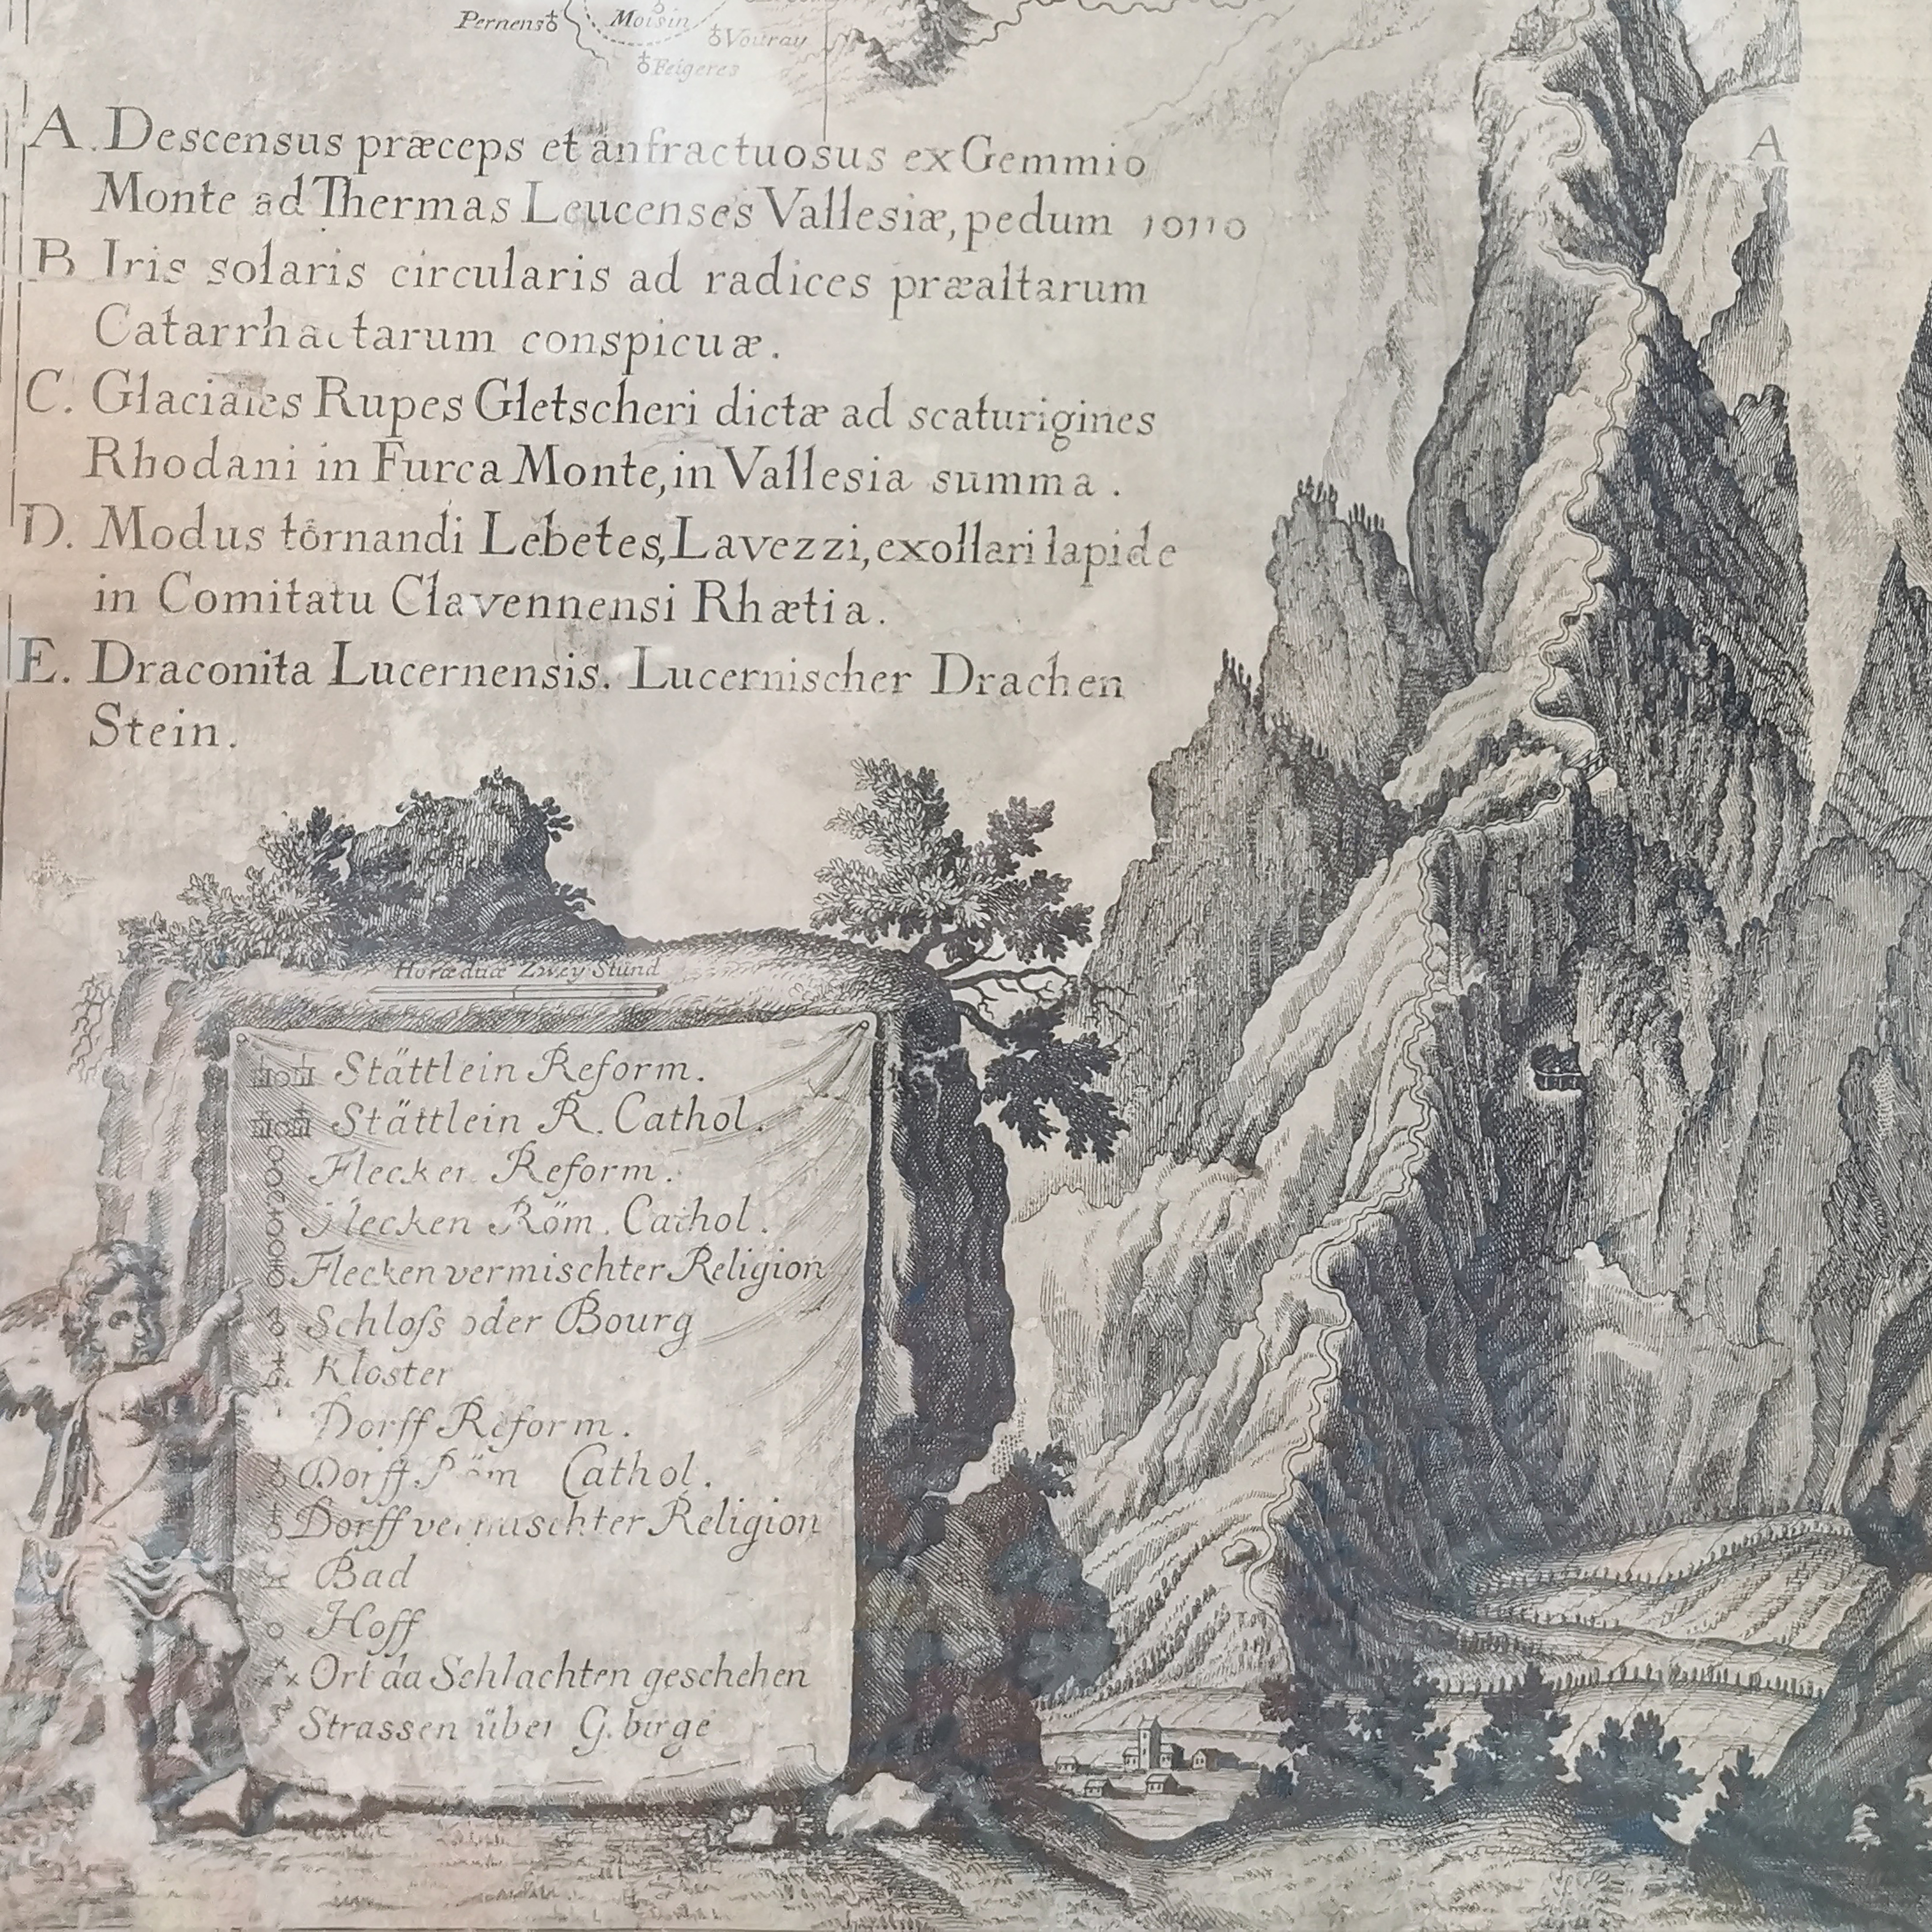 Pernens
Moisin
Vouray
Feigeres
A. Descensus præceps et anfractuosus ex Gemmio
Monte ad Thermas Leucenses Vallesiæ, pedum 10110
B Iris solaris circularis ad radices præaltarum
Catarrhactarum conspicuæ.
C. Glaciales Rupes Gletscheri dictæ ad scaturigines
Rhodani in Furca Monte, in Vallesia summa.
D. Modus tornandi Lebetes, Lavezzi, ex ollari lapide
in Comitatu Clavennensi Rhætia.
E. Draconita Lucernensis. Lucernischer Drachen
Stein.
A
Horæ duæ Zwey Stund
Stättlein Reform.
Stättlein R. Cathol.
Flecken Reform.
Flecken Röm. Cathol.
Flecken vermischter Religion
Schloſs oder Bourg
Kloster
Dorff Reform.
Dorff Röm Cathol.
Dorff vermischter Religion
Bad
Hoff
Ort da Schlachten geschehen
Strassen über Gebirge